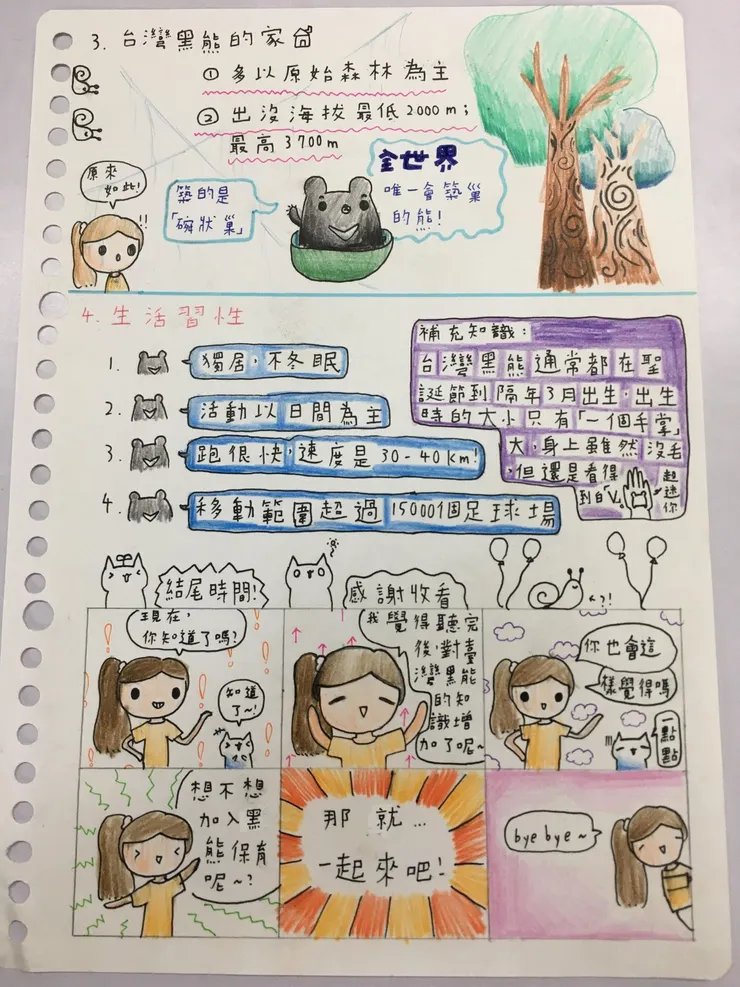 3. 台灣黑熊的家
① 多以原始森林為主
② 出沒海拔最低2000m；
最高3700m
原來
如此!
!!
築的是
「碗狀巢」
全世界
唯一會築巢
的熊!
4. 生活習性
1. 獨居，不冬眠
2. 活動以日間為主
3. 跑很快，速度是30-40km!
4. 移動範圍超過15000個足球場
補充知識：
台灣黑熊通常都在聖
誕節到隔年3月出生，出生
時的大小只有「一個手掌」
大，身上雖然沒毛
，但還是看得
到白「V」。
超迷你
結尾時間!
感謝收看
?!
現在，
你知道了嗎?
知道
了~!
我覺得聽完
後，對臺
灣黑熊
的知
識增
加了呢~
你也會這
樣覺得嗎
一點點
!!!
想不想
加入黑
熊保育
呢~?
那就...
一起來吧!
bye bye~